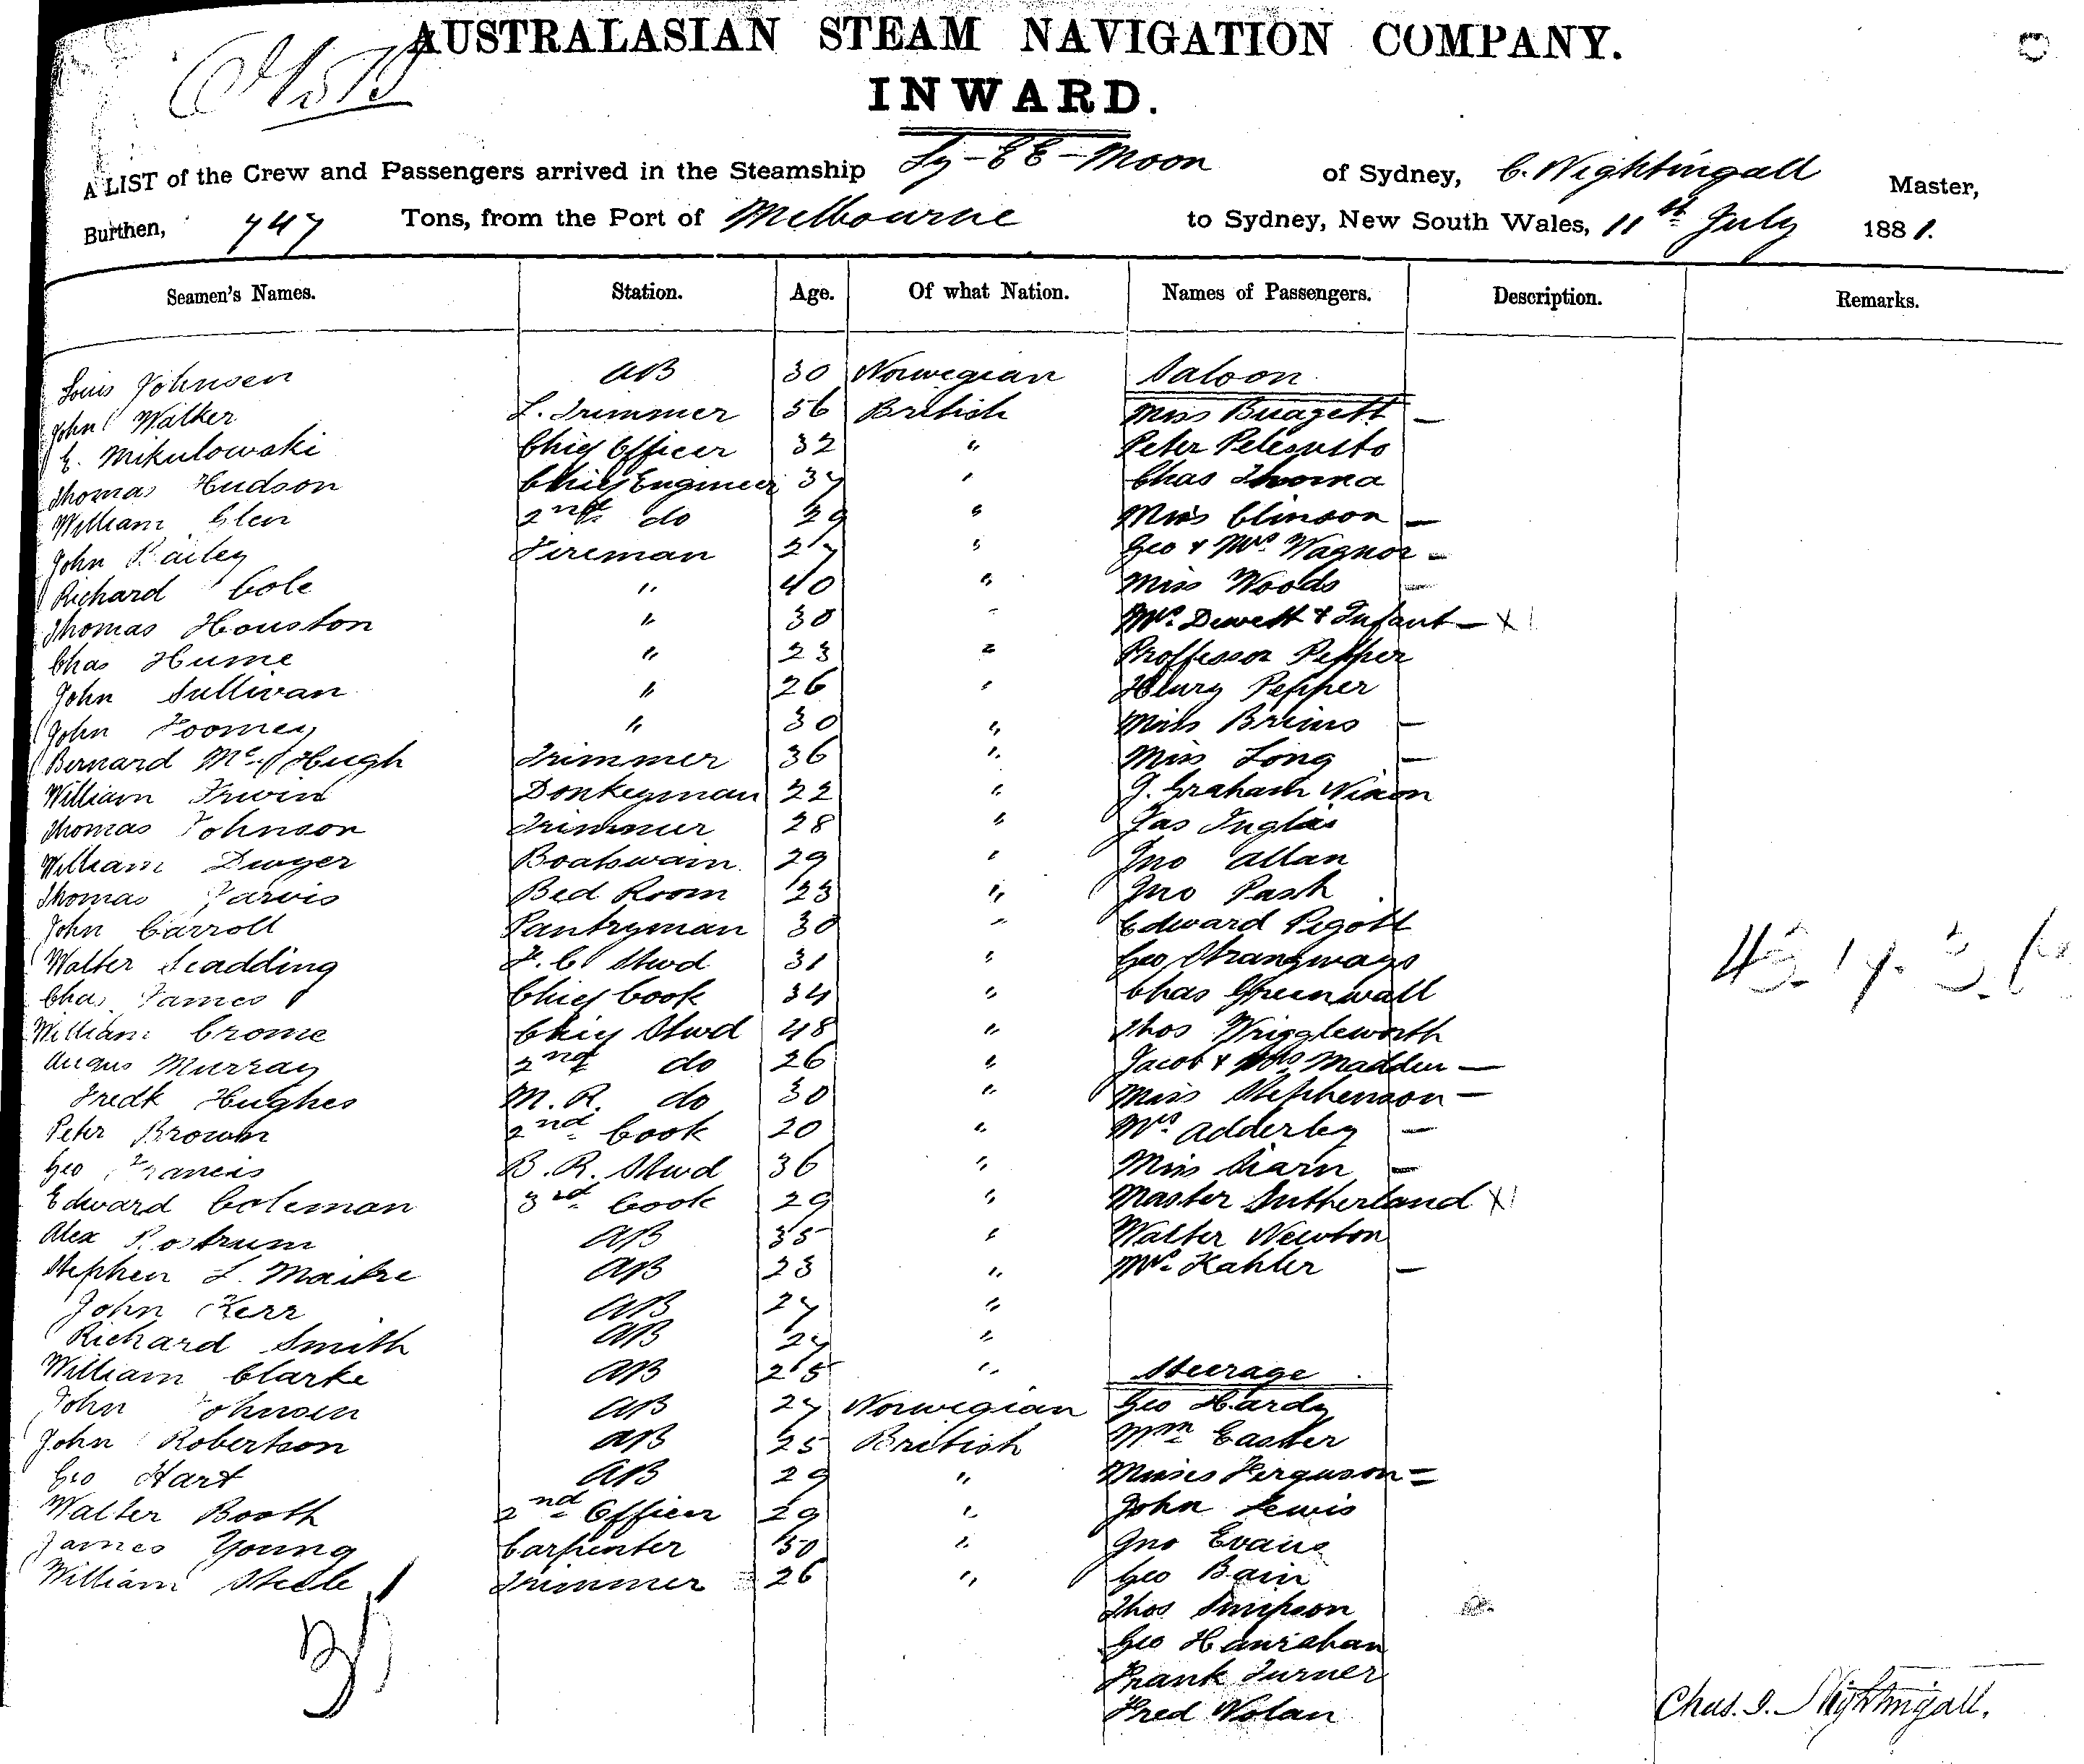 AUSTRALASIAN STEAM NAVIGATION COMPANY.
INWARD.
A LIST of the Crew and Passengers arrived in the Steamship Ly-EE-Moon of Sydney, C. Nightingall Master,
Burthen, 747 Tons, from the Port of Melbourne to Sydney, New South Wales, 11th July 1881.
Seamen's Names. Station. Age. Of what Nation. Names of Passengers. Description. Remarks.
Louis Johnsen AB 30 Norwegian Saloon
John Walker L. Trimmer 56 British Miss —
E. Mikulowski Chief Officer 32 " Peter
Thomas Hudson Chief Engineer 37 " Chas Thoma
William Glen 2nd do 29 " Miss Clinson —
John Bailey Fireman 27 " Geo & Mrs Wagnor —
Richard Cole " 40 " Miss Woods —
Thomas Houston " 30 " Mrs Dewett & Infant — X1
Chas Hume " 23 " Proffessor Pepper
John Sullivan " 26 " Henry Pepper
John Toomey " 30 " Miss Brims —
Bernard McHugh Trimmer 36 " Miss Long —
William Irwin Donkeyman 22 " J. Graham Nixon
Thomas Johnson Trimmer 28 " Jas Inglis
William Dwyer Boatswain 29 " Jno Allan
Thomas Jarvis Bed Room 23 " Jno Pash
John Carroll Pantryman 30 " Edward Pigott
Walter Scadding F. C. Stwd 31 " Geo Strangways
Chas James Chief Cook 34 " Chas Greenwall
William Crome Chief Stwd 48 " Thos Wriggleworth
Angus Murray 2nd do 26 " Jacob & Mrs Madden —
Fredk Hughes M. R. do 30 " Miss Stephenson —
Peter Brown 2nd Cook 20 " Mrs Adderley —
Geo Francis B. R. Stwd 36 " Miss —
Edward Coleman 3rd Cook 29 " Master Sutherland X1
Alex Rostrum AB 35 " Walter Newton
Stephen L. Maitre AB 23 " Mrs Kahler —
John Kerr AB 27 "
Richard Smith AB 27 "
William Clarke AB 25 " Steerage
John Johnsen AB 27 Norwegian Geo Hardy
John Robertson AB 25 British Wm Easter
Geo Hart AB 29 " Misses Ferguson =
Walter Booth 2nd Officer 29 " John Lewis
James Young Carpenter 50 " Jno Evans
William Steele Trimmer 26 " Geo Bain
Thos Simpson
Geo Hanrahan
Frank Turner
Fred Nolan
Chas. I. Nightingall.